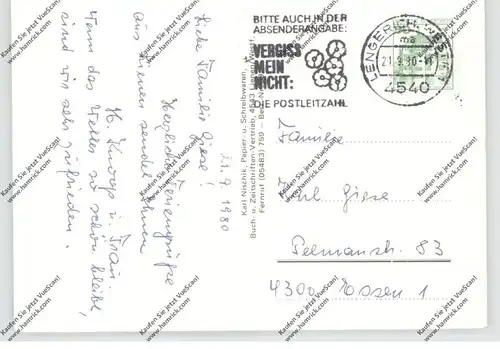 BITTE AUCH IN DER
ABSENDERANGABE:
VERGISS
MEIN
NICHT:
DIE POSTLEITZAHL
LENGERICH, WESTF
ma
21.9.80-
4540
21.9.1980
Liebe Familie Giese!
Herzliche Feriengrüße
aus Lienen sendet Ihnen
H. Knoop u. Frau
Wenn das Wetter so schön bleibt,
sind wir sehr zufrieden.
Karl Nischik, Papier- u. Schreibwaren,
Buch- u. Zeitschriften-Vertrieb, 4543 Lienen
Fernruf (05483) 789
Familie
Giese
Pelmanstr. 83
4300 Essen 1
Kaufen Sie jetzt VueScan!
www.hamrick.com